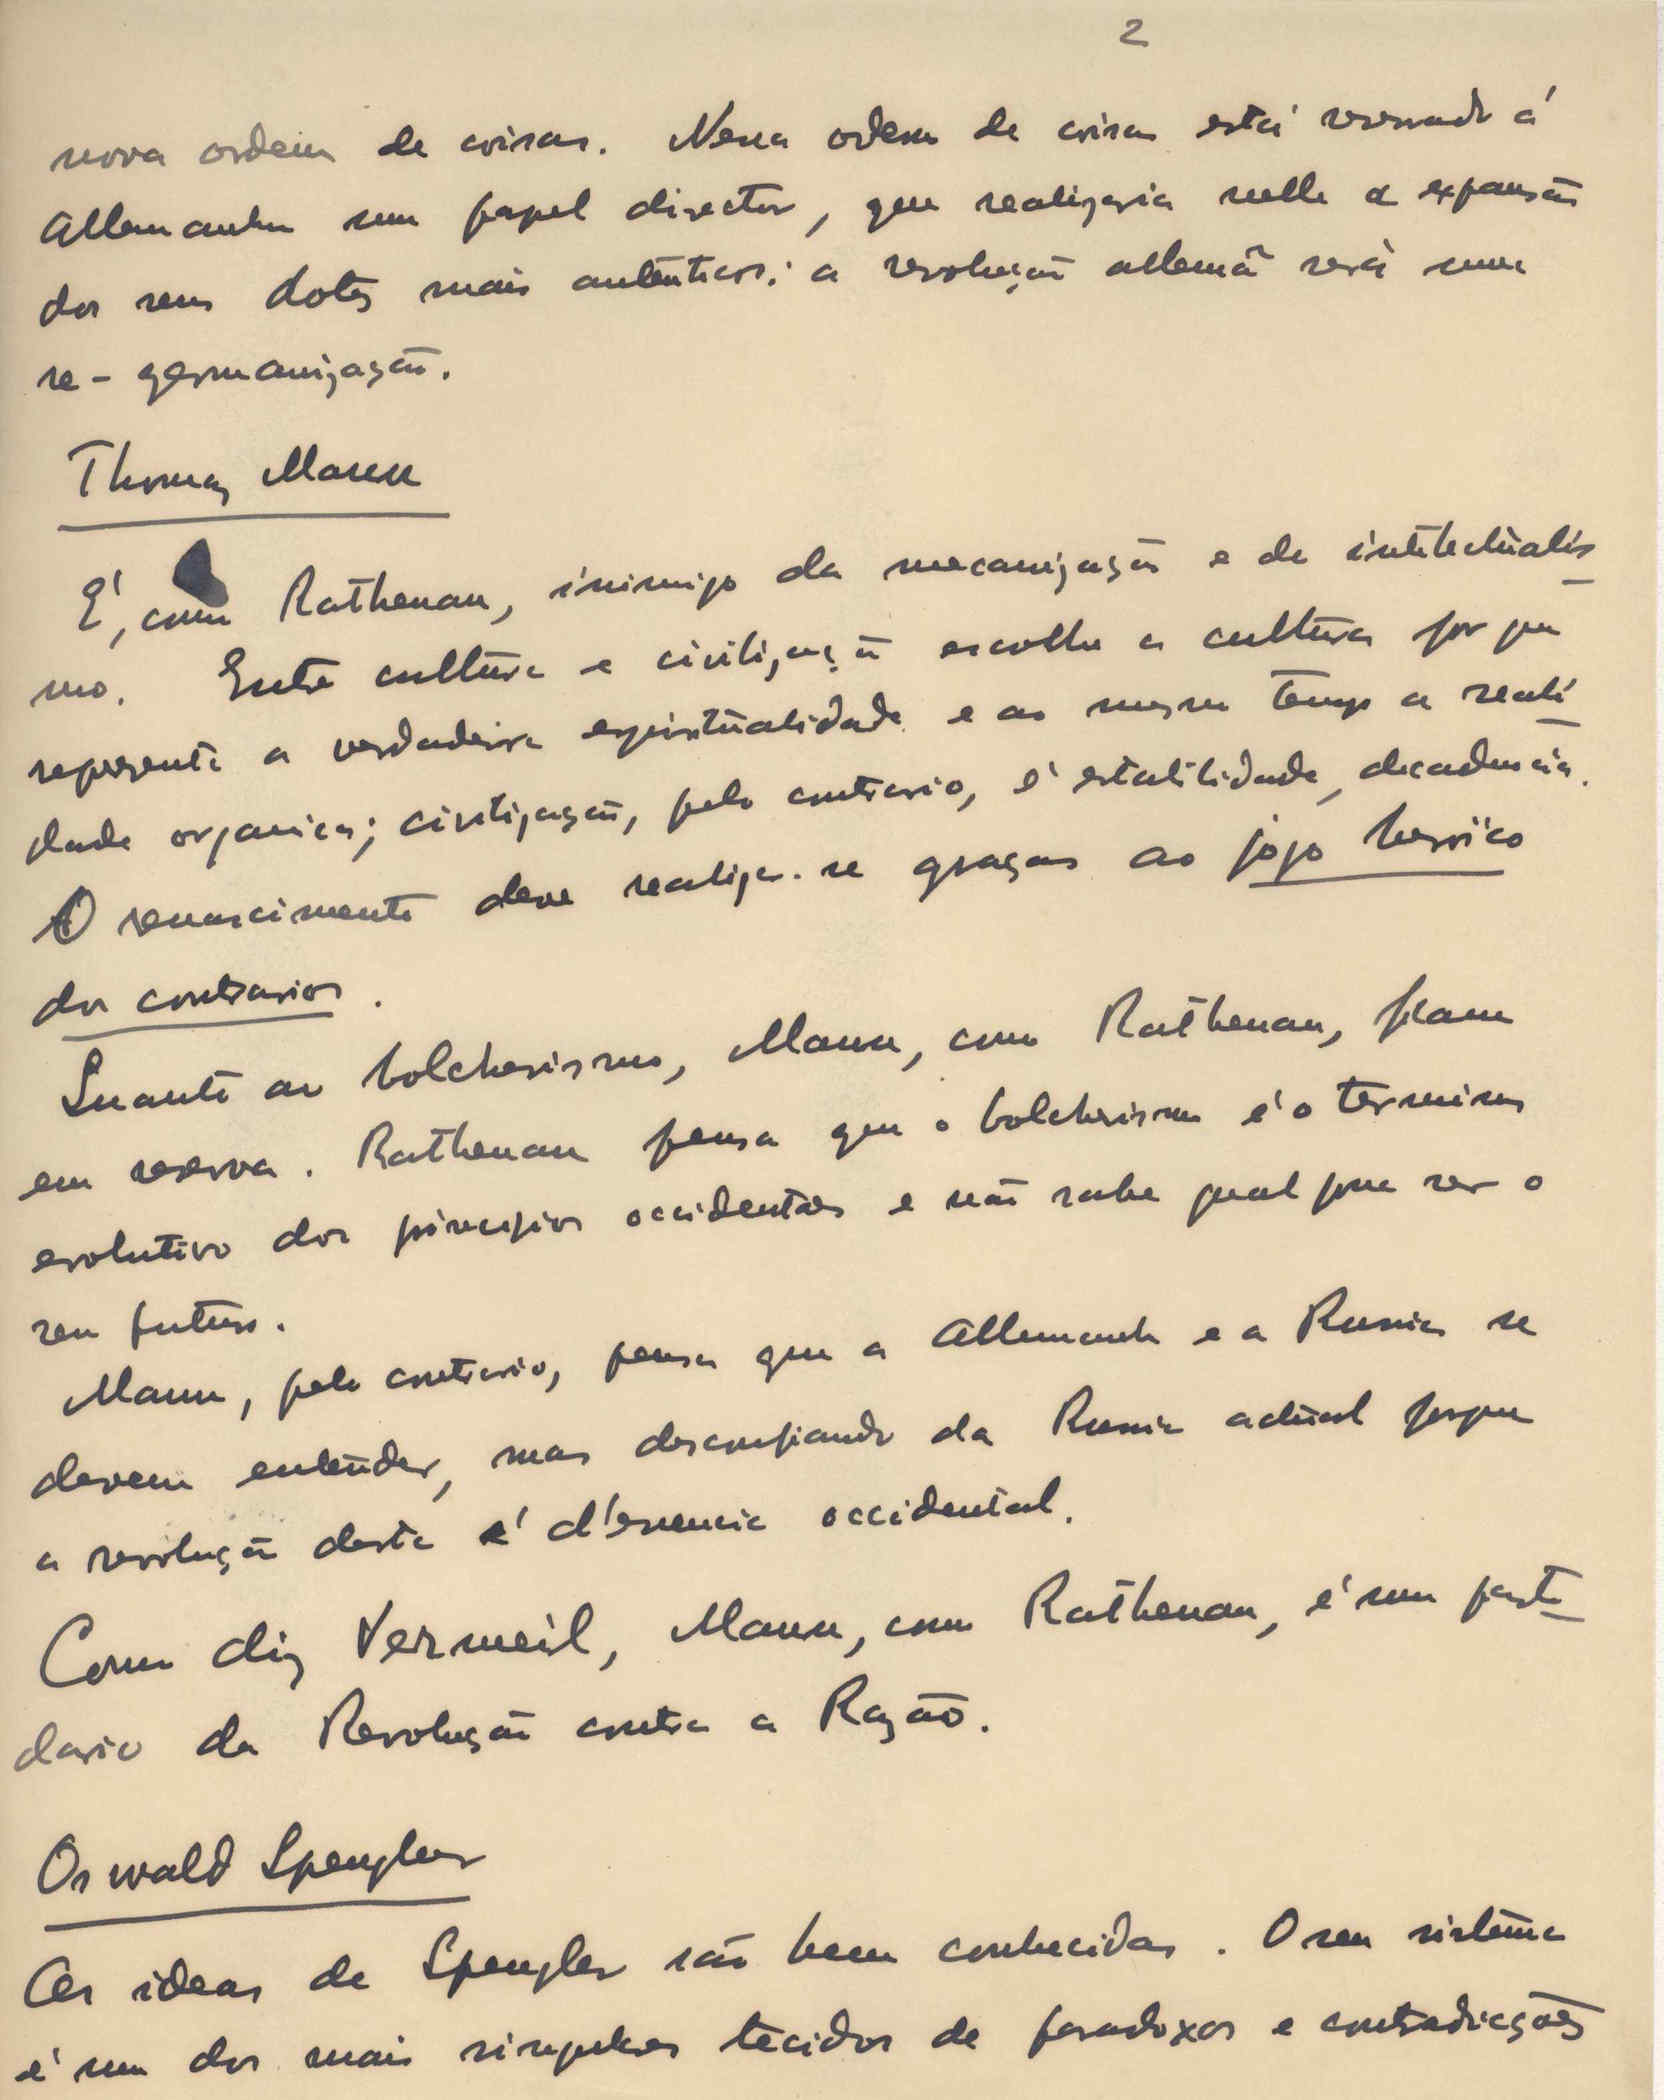 2
nova ordem de coisas. Nessa ordem de coisas está reservado á
Allemanha um papel director, que realizaria nelle a expansão
dos seus dotes mais autênticos: a revolução allemã será uma
re-germanização.
Thomas Mann
É, como Rathenau, inimigo da mecanização e do intelectualis
mo. Entre cultura e civilização escolhe a cultura por que
representa a verdadeira espiritualidade e ao mesmo tempo a reali
dade organica; civilização, pelo contrario, é estabilidade, decadencia.
O renascimento deve realizar-se graças ao jogo heroico
dos contrarios.
Quanto ao bolchevismo, Mann, como Rathenau, ficam
em reserva. Rathenau pensa que o bolchevismo é o terminus
evolutivo dos principios occidentaes e não sabe qual possa ser o
seu futuro.
Mann, pelo contrario, pensa que a Allemanha e a Russia se
devem entender, mas desconfiando da Russia actual porque
a revolução desta é d'essencia occidental.
Como diz Vermeil, Mann, como Rathenau, é um parti
dario da Revolução contra a Razão.
Oswald Spengler
As ideas de Spengler são bem conhecidas. O seu sistema
é um dos mais singulares tecidos de paradoxos e contradicções